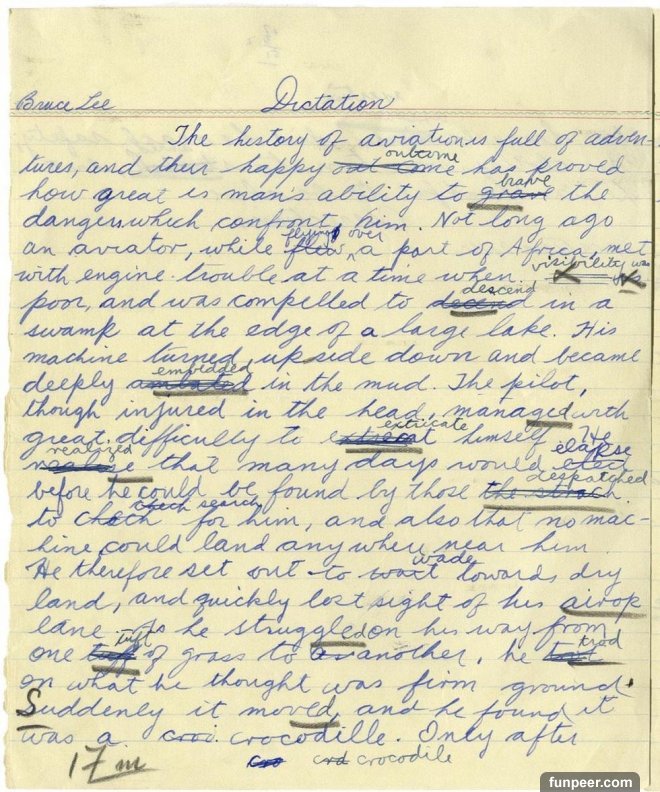 Bruce Lee Dictation
The history of aviation is full of adven-
tures, and their happy outcome has proved
how great is man's ability to brave the
dangers which confront him. Not long ago
an aviator, while flying over a part of Africa, met
with engine trouble at a time when visibility was
poor, and was compelled to descend in a
swamp at the edge of a large lake. His
machine turned upside down and became
deeply embedded in the mud. The pilot,
though injured in the head, managed with
great difficully to extricate himself. He
realized that many days would elapse
before he could be found by those despatched
to check search for him, and also that no mac-
hine could land anywhere near him.
He therefore set out to wade towards dry
land, and quickly lost sight of his airop
lane. As he struggled on his way from
one tuft of grass to another, he trod
on what he thought was firm ground.
Suddenly it moved, and he found it
was a croi crocodille. Only after
17 m cro crd crocodile
funpeer.com